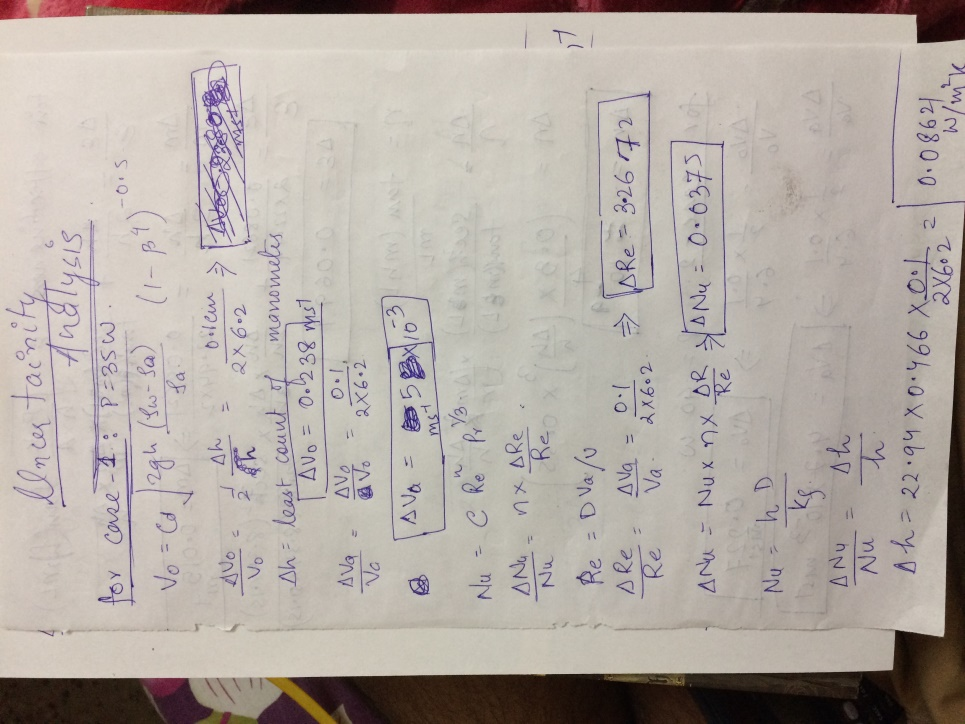 Uncertainity
Analysis
for case-1: P=35W.
V₀ = Cd √(2gh (ρw-ρa)/ρa) (1-β⁴)^-0.5
ΔV₀/V₀ = 1/2 Δh/h = 0.1cm/(2×6.2) ⇒
Δh = least count of manometer.
ΔV₀ = 0.238 ms⁻¹
ΔVa/Va = ΔV₀/V₀ = 0.1/(2×6.2)
ΔVa = 5 ×10⁻³ ms⁻¹
Nu = C Reⁿ Pr^1/3
ΔNu/Nu = n × ΔRe/Re.
Re = D Va/ν
ΔRe/Re = ΔVa/Va = 0.1/(2×6.2) ⇒ ΔRe = 3.2672
ΔNu = Nu × n × ΔR/Re ⇒ ΔNu = 0.0375
Nu = hD/kg
ΔNu/Nu = Δh/h
Δh = 22.94 × 0.466 × 0.1/(2×6.2) = 0.0862 W/m²K